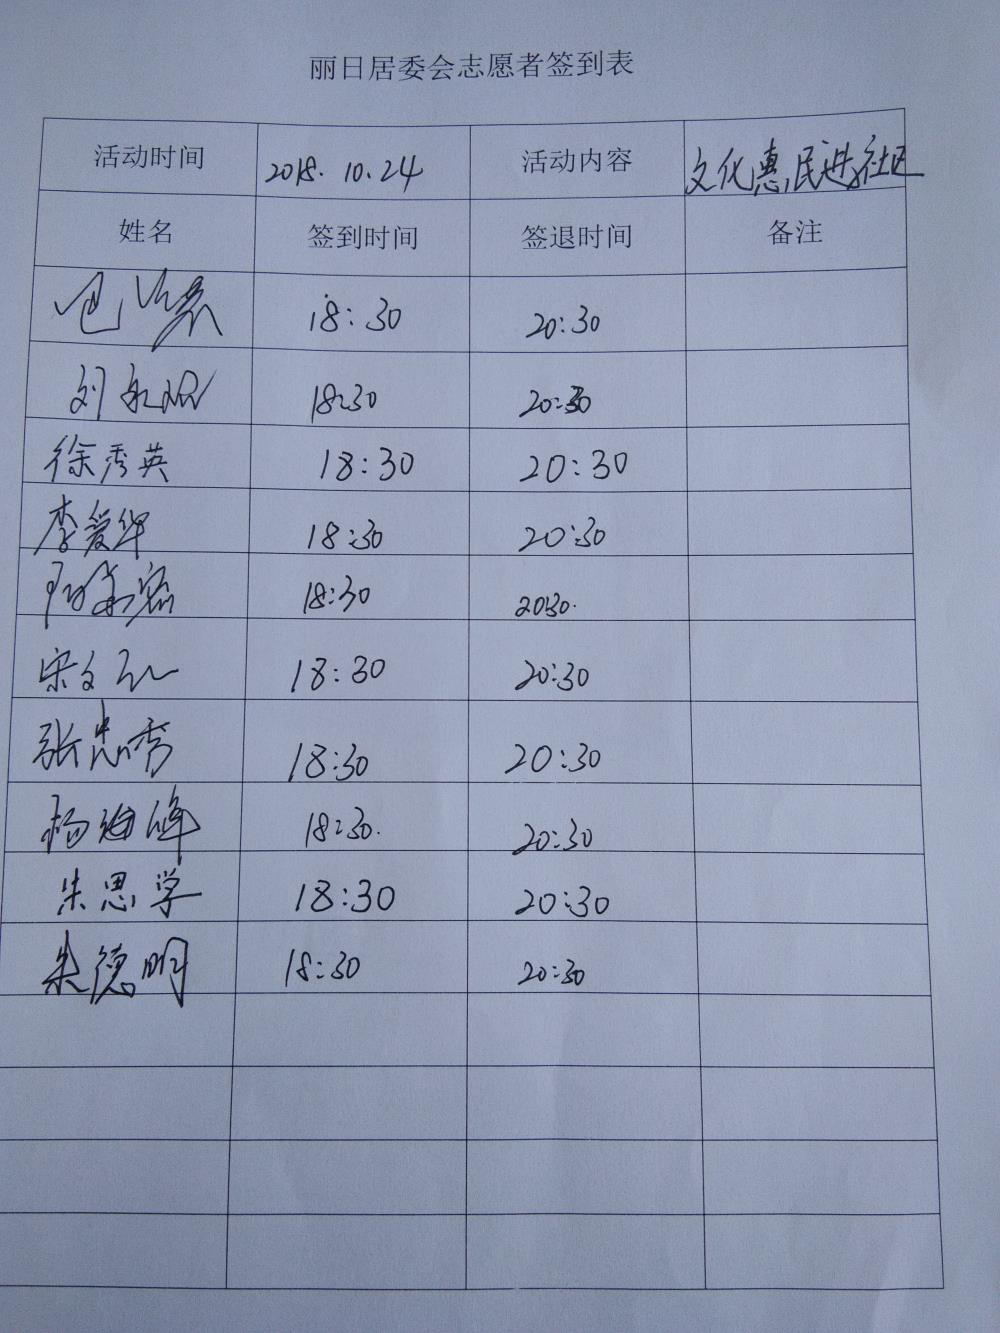 丽日居委会志愿者签到表
活动时间 2018.10.24 活动内容 文化惠民进社区
姓名 签到时间 签退时间 备注
18:30 20:30
刘 18:30 20:30
徐秀英 18:30 20:30
李爱华 18:30 20:30
18:30 20:30.
宋文 18:30 20:30
张忠秀 18:30 20:30
杨海峰 18:30. 20:30
朱思学 18:30 20:30
朱德明 18:30 20:30